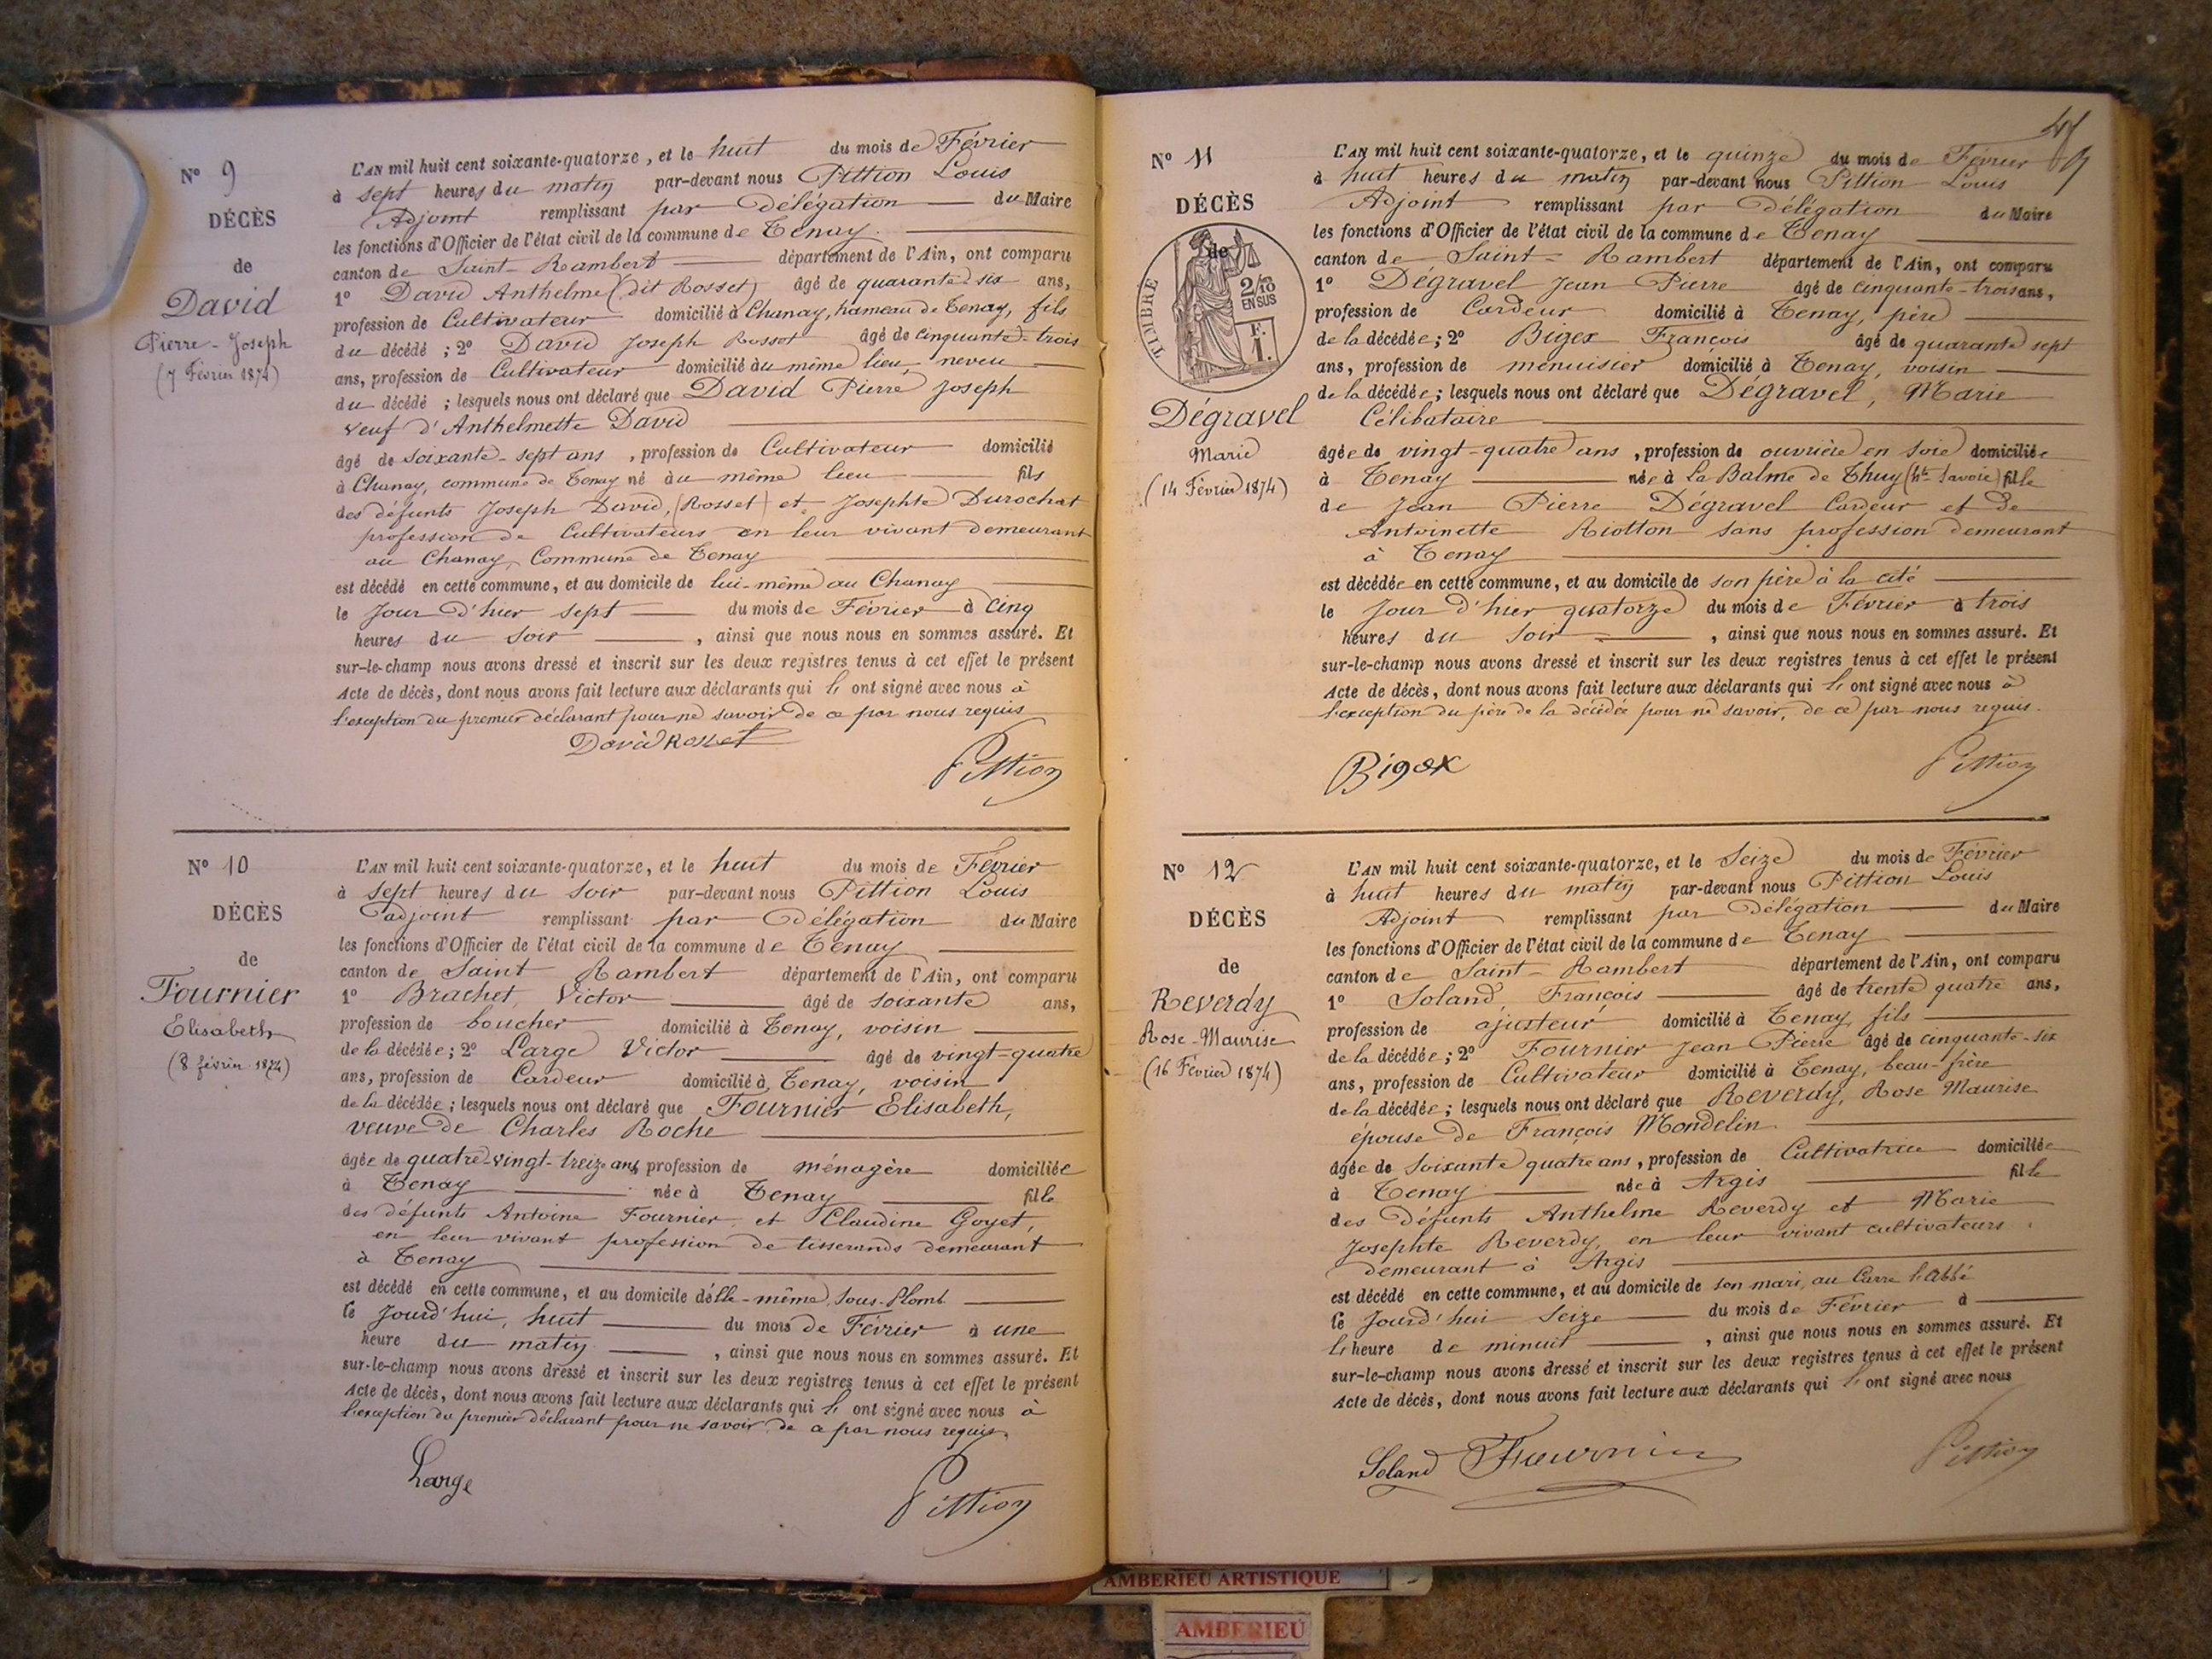 N° 9
DÉCÈS
de
David
Pierre-Joseph
(7 Février 1874)
L'AN mil huit cent soixante-quatorze, et le huit du mois de Février
à sept heures du matin par-devant nous Pittion Louis
Adjoint remplissant par Délégation du Maire
les fonctions d'Officier de l'état civil de la commune de Tenay.
canton de Saint-Rambert département de l'Ain, ont comparu
1° David Anthelme (dit Rosset) âgé de quarante six ans,
profession de Cultivateur domicilié à Chanay, hameau de Tenay, fils
du décédé ; 2° David Joseph Rosset âgé de cinquante-trois
ans, profession de Cultivateur domicilié au même lieu, neveu
du décédé ; lesquels nous ont déclaré que David Pierre Joseph
veuf d'Anthelmette David
âgé de soixante-sept ans, profession de Cultivateur domicilié
à Chanay, commune de Tenay né au même lieu fils
des défunts Joseph David, (Rosset) et Josephte Durochat
profession de Cultivateurs en leur vivant demeurant
au Chanay, Commune de Tenay
est décédé en cette commune, et au domicile de lui-même au Chanay
le Jour d'hier sept du mois de Février à cinq
heures du soir, ainsi que nous nous en sommes assuré. Et
sur-le-champ nous avons dressé et inscrit sur les deux registres tenus à cet effet le présent
Acte de décès, dont nous avons fait lecture aux déclarants qui l' ont signé avec nous à
l'exception du premier déclarant pour ne savoir de ce par nous requis
David Rosset
Pittion
N° 10
DÉCÈS
de
Fournier
Elisabeth
(8 février 1874)
L'AN mil huit cent soixante-quatorze, et le huit du mois de Février
à sept heures du soir par-devant nous Pittion Louis
adjoint remplissant par Délégation du Maire
les fonctions d'Officier de l'état civil de la commune de Tenay
canton de Saint Rambert département de l'Ain, ont comparu
1° Brachet Victor âgé de soixante ans,
profession de boucher domicilié à Tenay, voisin
de la décédée ; 2° Large Victor âgé de vingt-quatre
ans, profession de Cardeur domicilié à Tenay, voisin
de la décédée ; lesquels nous ont déclaré que Fournier Elisabeth,
veuve de Charles Roche
âgée de quatre-vingt-treize ans, profession de ménagère domiciliée
à Tenay née à Tenay fille
des défunts Antoine Fournier et Claudine Goyet,
en leur vivant profession de tisserands demeurant
à Tenay
est décédé en cette commune, et au domicile d'elle-même, sous-Plomb.
le Jourd'hui, huit du mois de Février à une
heure du matin, ainsi que nous nous en sommes assuré. Et
sur-le-champ nous avons dressé et inscrit sur les deux registres tenus à cet effet le présent
Acte de décès, dont nous avons fait lecture aux déclarants qui l' ont signé avec nous à
l'exception du premier déclarant pour ne savoir de ce par nous requis.
Large
Pittion
N° 11
DÉCÈS
de
TIMBRE
2/10
EN SUS
F.
1.
Dégravel
Marie
(14 Février 1874)
L'AN mil huit cent soixante-quatorze, et le quinze du mois de Février
à huit heures du matin par-devant nous Pittion Louis
Adjoint remplissant par Délégation du Maire
les fonctions d'Officier de l'état civil de la commune de Tenay
canton de Saint-Rambert département de l'Ain, ont comparu
1° Dégravel Jean Pierre âgé de cinquante-trois ans,
profession de Cardeur domicilié à Tenay, père
de la décédée ; 2° Bigex François âgé de quarante sept
ans, profession de menuisier domicilié à Tenay, voisin
de la décédée ; lesquels nous ont déclaré que Dégravel, Marie
Célibataire
âgée de vingt-quatre ans, profession de ouvrière en soie domiciliée
à Tenay née à La Balme de Thuy (hte Savoie) fille
de Jean Pierre Dégravel Cardeur et de
Antoinette Riotton sans profession demeurant
à Tenay
est décédée en cette commune, et au domicile de son père à la cité
le Jour d'hier quatorze du mois de Février à trois
heures du soir, ainsi que nous nous en sommes assuré. Et
sur-le-champ nous avons dressé et inscrit sur les deux registres tenus à cet effet le présent
Acte de décès, dont nous avons fait lecture aux déclarants qui l' ont signé avec nous à
l'exception du père de la décédée pour ne savoir, de ce par nous requis.
Bigex
Pittion
N° 12
DÉCÈS
de
Reverdy
Rose-Maurise
(16 Février 1874)
L'AN mil huit cent soixante-quatorze, et le Seize du mois de Février
à huit heures du matin par-devant nous Pittion Louis
Adjoint remplissant par Délégation du Maire
les fonctions d'Officier de l'état civil de la commune de Tenay
canton de Saint-Rambert département de l'Ain, ont comparu
1° Soland, François âgé de trente quatre ans,
profession de ajusteur domicilié à Tenay, fils
de la décédée ; 2° Fournier Jean Pierre âgé de cinquante-six
ans, profession de Cultivateur domicilié à Tenay, beau-frère
de la décédée ; lesquels nous ont déclaré que Reverdy, Rose Maurise
épouse de François Mondelin.
âgée de soixante quatre ans, profession de Cultivatrice domiciliée
à Tenay née à Argis fille
des défunts Anthelme Reverdy et Marie
Josephte Reverdy, en leur vivant cultivateurs
demeurant à Argis
est décédé en cette commune, et au domicile de son mari, au Carre l'Abbé
le Jourd'hui Seize du mois de Février à
l'heure de minuit, ainsi que nous nous en sommes assuré. Et
sur-le-champ nous avons dressé et inscrit sur les deux registres tenus à cet effet le présent
Acte de décès, dont nous avons fait lecture aux déclarants qui l' ont signé avec nous
Soland Fournier
Pittion
AMBERIEU ARTISTIQUE
AMBERIEU